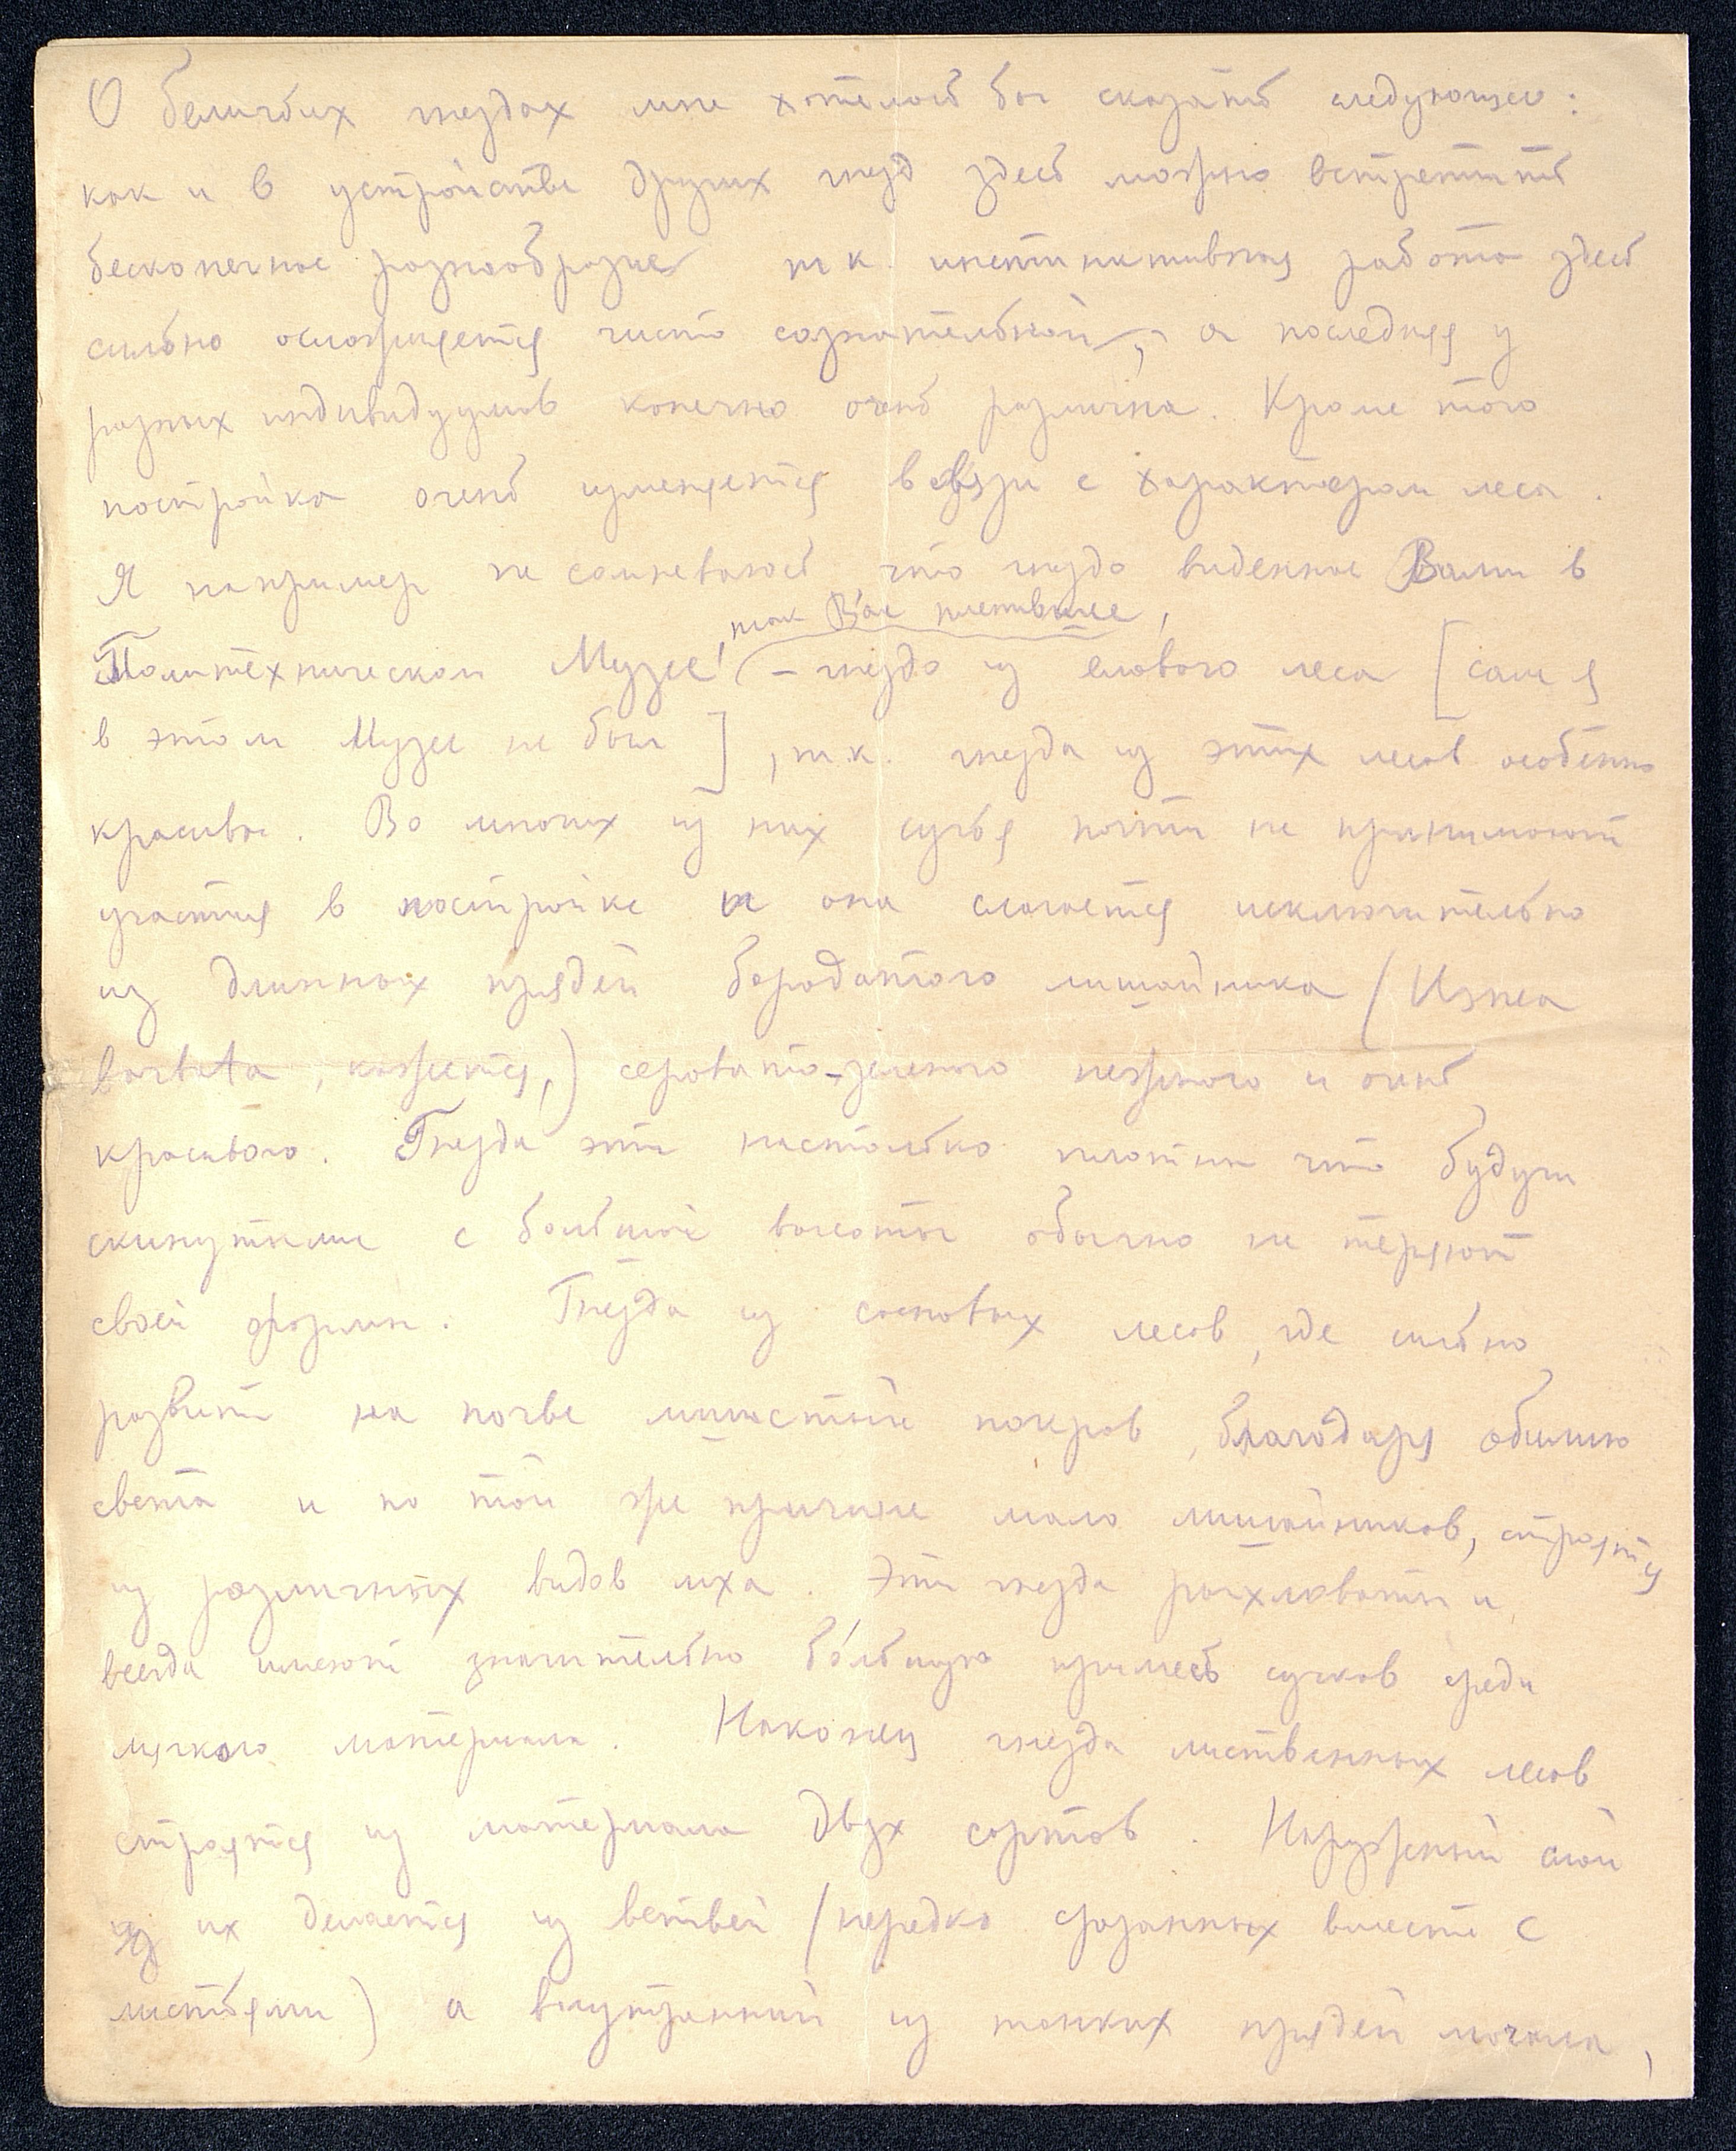 О беличьих гнездах мне хотелось бы сказать следующее:
как и в устройстве других гнезд здесь можно встретить
бесконечное разнообразие т.к. инстинктивная работа здесь
сильно осложняется чисто сознательной, а последняя у
разных индивидуумов конечно очень различна. Кроме того
постройка очень изменяется в связи с характером леса.
Я например не сомневаюсь что гнездо виденное Вами в
, так Вас пленившее,
Политехническом Музее – гнездо из елового леса [сам я
в этом Музее не был], т.к. гнезда из этих лесов особенно
красивы. Во многих из них сучья почти не принимают
участия в постройке и она слагается исключительно
из длинных прядей бородатого лишайника (Изнеа
barbata, кажется,) серовато-зеленого нежного и очень
красивого. Гнезда эти настолько плотны что будучи
скинутыми с большой высоты обычно не теряют
своей формы. Гнезда из сосновых лесов, где сильно
развит на почве мшистый покров, благодаря обилию
света и по той же причине мало лишайников, строятся
из различных видов мха. Эти гнезда рыхловаты и
всегда имеют значительно бо́льшую примесь сучков среди
мягкого материала. Наконец гнезда лиственных лесов
строятся из материала двух сортов. Наружный слой
их делается из ветвей (нередко срезанных вместе с
листьями) а внутренний из тонких прядей мочала,